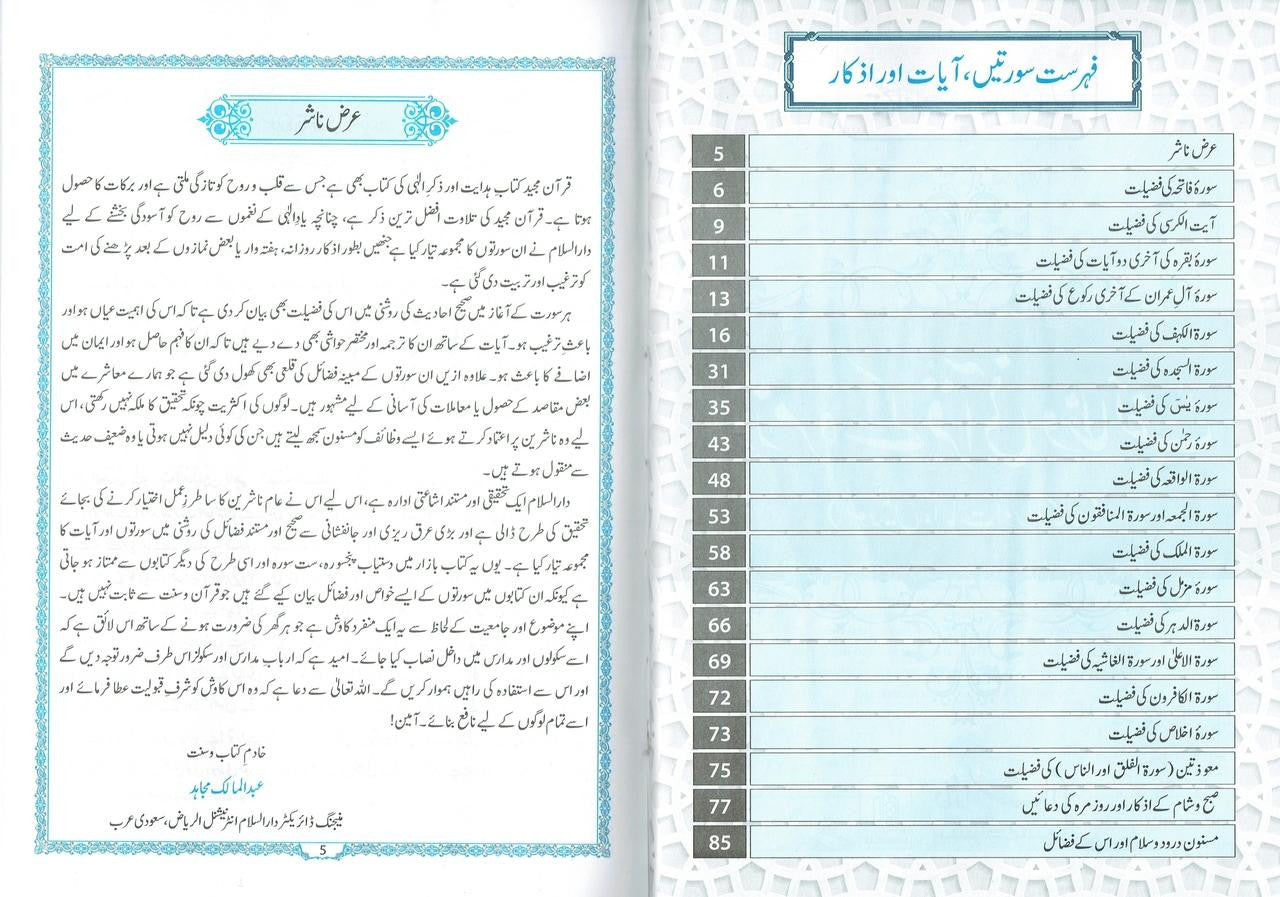 فہرست سورتیں، آیات اور اذکار
عرض ناشر 5
سورۂ فاتحہ کی فضیلت 6
آیت الکرسی کی فضیلت 9
سورۂ بقرہ کی آخری دو آیات کی فضیلت 11
سورۂ آل عمران کے آخری رکوع کی فضیلت 13
سورۃ الکہف کی فضیلت 16
سورۃ السجدہ کی فضیلت 31
سورۂ یٰسٓ کی فضیلت 35
سورۂ رحمٰن کی فضیلت 43
سورۃ الواقعہ کی فضیلت 48
سورۃ الجمعہ اور سورۃ المنافقون کی فضیلت 53
سورۃ الملک کی فضیلت 58
سورۂ مزمل کی فضیلت 63
سورۃ الدہر کی فضیلت 66
سورۃ الاعلیٰ اور سورۃ الغاشیہ کی فضیلت 69
سورۃ الکافرون کی فضیلت 72
سورۂ اخلاص کی فضیلت 73
معوذتین (سورۃ الفلق اور الناس) کی فضیلت 75
صبح و شام کے اذکار اور روز مرہ کی دعائیں 77
مسنون درود و سلام اور اس کے فضائل 85
عرض ناشر
قرآن مجید کتاب ہدایت اور ذکر الٰہی کی کتاب بھی ہے جس سے قلب و روح کو تازگی ملتی ہے اور برکات کا حصول
ہوتا ہے۔ قرآن مجید کی تلاوت افضل ترین ذکر ہے، چنانچہ یادِ الٰہی کے نغموں سے روح کو آسودگی بخشنے کے لیے
دارالسلام نے ان سورتوں کا مجموعہ تیار کیا ہے جنھیں بطور اذکار روزانہ، ہفتہ وار یا بعض نمازوں کے بعد پڑھنے کی امت
کو ترغیب اور تربیت دی گئی ہے۔
ہر سورت کے آغاز میں صحیح احادیث کی روشنی میں اس کی فضیلت بھی بیان کر دی ہے تاکہ اس کی اہمیت عیاں ہو اور
باعثِ ترغیب ہو۔ آیات کے ساتھ ان کا ترجمہ اور مختصر حواشی بھی دے دیے ہیں تاکہ ان کا فہم حاصل ہو اور ایمان میں
اضافے کا باعث ہو۔ علاوہ ازیں ان سورتوں کے مبینہ فضائل کی قلعی بھی کھول دی گئی ہے جو ہمارے معاشرے میں
بعض مقاصد کے حصول یا معاملات کی آسانی کے لیے مشہور ہیں۔ لوگوں کی اکثریت چونکہ تحقیق کا ملکہ نہیں رکھتی، اس
لیے وہ ناشرین پر اعتماد کرتے ہوئے ایسے وظائف کو مسنون سمجھ لیتے ہیں جن کی کوئی دلیل نہیں ہوتی یا وہ ضعیف حدیث
سے منقول ہوتے ہیں۔
دارالسلام ایک تحقیقی اور مستند اشاعتی ادارہ ہے، اس لیے اس نے عام ناشرین کا سا طرزِ عمل اختیار کرنے کی بجائے
تحقیق کی طرح ڈالی ہے اور بڑی عرق ریزی اور جانفشانی سے صحیح اور مستند فضائل کی روشنی میں سورتوں اور آیات کا
مجموعہ تیار کیا ہے۔ یوں یہ کتاب بازار میں دستیاب پنجسورہ، ست سورہ اور اسی طرح کی دیگر کتابوں سے ممتاز ہو جاتی
ہے کیونکہ ان کتابوں میں سورتوں کے ایسے خواص اور فضائل بیان کیے گئے ہیں جو قرآن و سنت سے ثابت نہیں ہیں۔
اپنے موضوع اور جامعیت کے لحاظ سے یہ ایک منفرد کاوش ہے جو ہر گھر کی ضرورت ہونے کے ساتھ اس لائق ہے کہ
اسے سکولوں اور مدارس میں داخل نصاب کیا جائے۔ امید ہے کہ ارباب مدارس اور سکولز اس طرف ضرور توجہ دیں گے
اور اس سے استفادہ کی راہیں ہموار کریں گے۔ اللہ تعالیٰ سے دعا ہے کہ وہ اس کاوش کو شرفِ قبولیت عطا فرمائے اور
اسے تمام لوگوں کے لیے نافع بنائے۔ آمین!
خادم کتاب و سنت
عبدالمالک مجاہد
مینجنگ ڈائریکٹر دارالسلام انٹرنیشنل الریاض، سعودی عرب
5